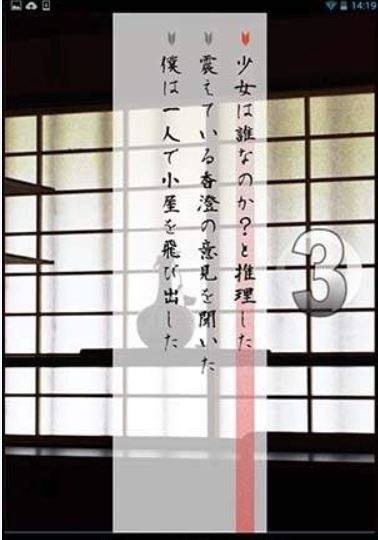 14:19
少女は誰なのか？と推理した
震えている香澄の意見を聞いた
僕は一人で小屋を飛び出した
3